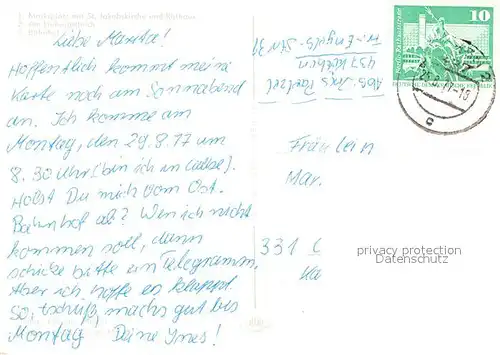 Marktplatz mit St. Jakobskirche und Rathaus
Liebe Marita!
Hoffentlich kommt meine
Karte noch am Sonnabend
an. Ich komme am
Montag, den 29.8.77 um
8.30 Uhr (bin ich in Calbe).
Holst Du mich vom Ost.
Bahnhof ab? Wenn ich nicht
kommen soll, dann
schicke bitte ein Telegramm.
Aber ich hoffe es klappt.
So, tschüß, machs gut bis
Montag Deine Ines!
Abs. Ines
Fr.-Engels-Str 31
437 Köthen
10
Fräulein
Mar.
331 C
privacy protection
Datenschutz